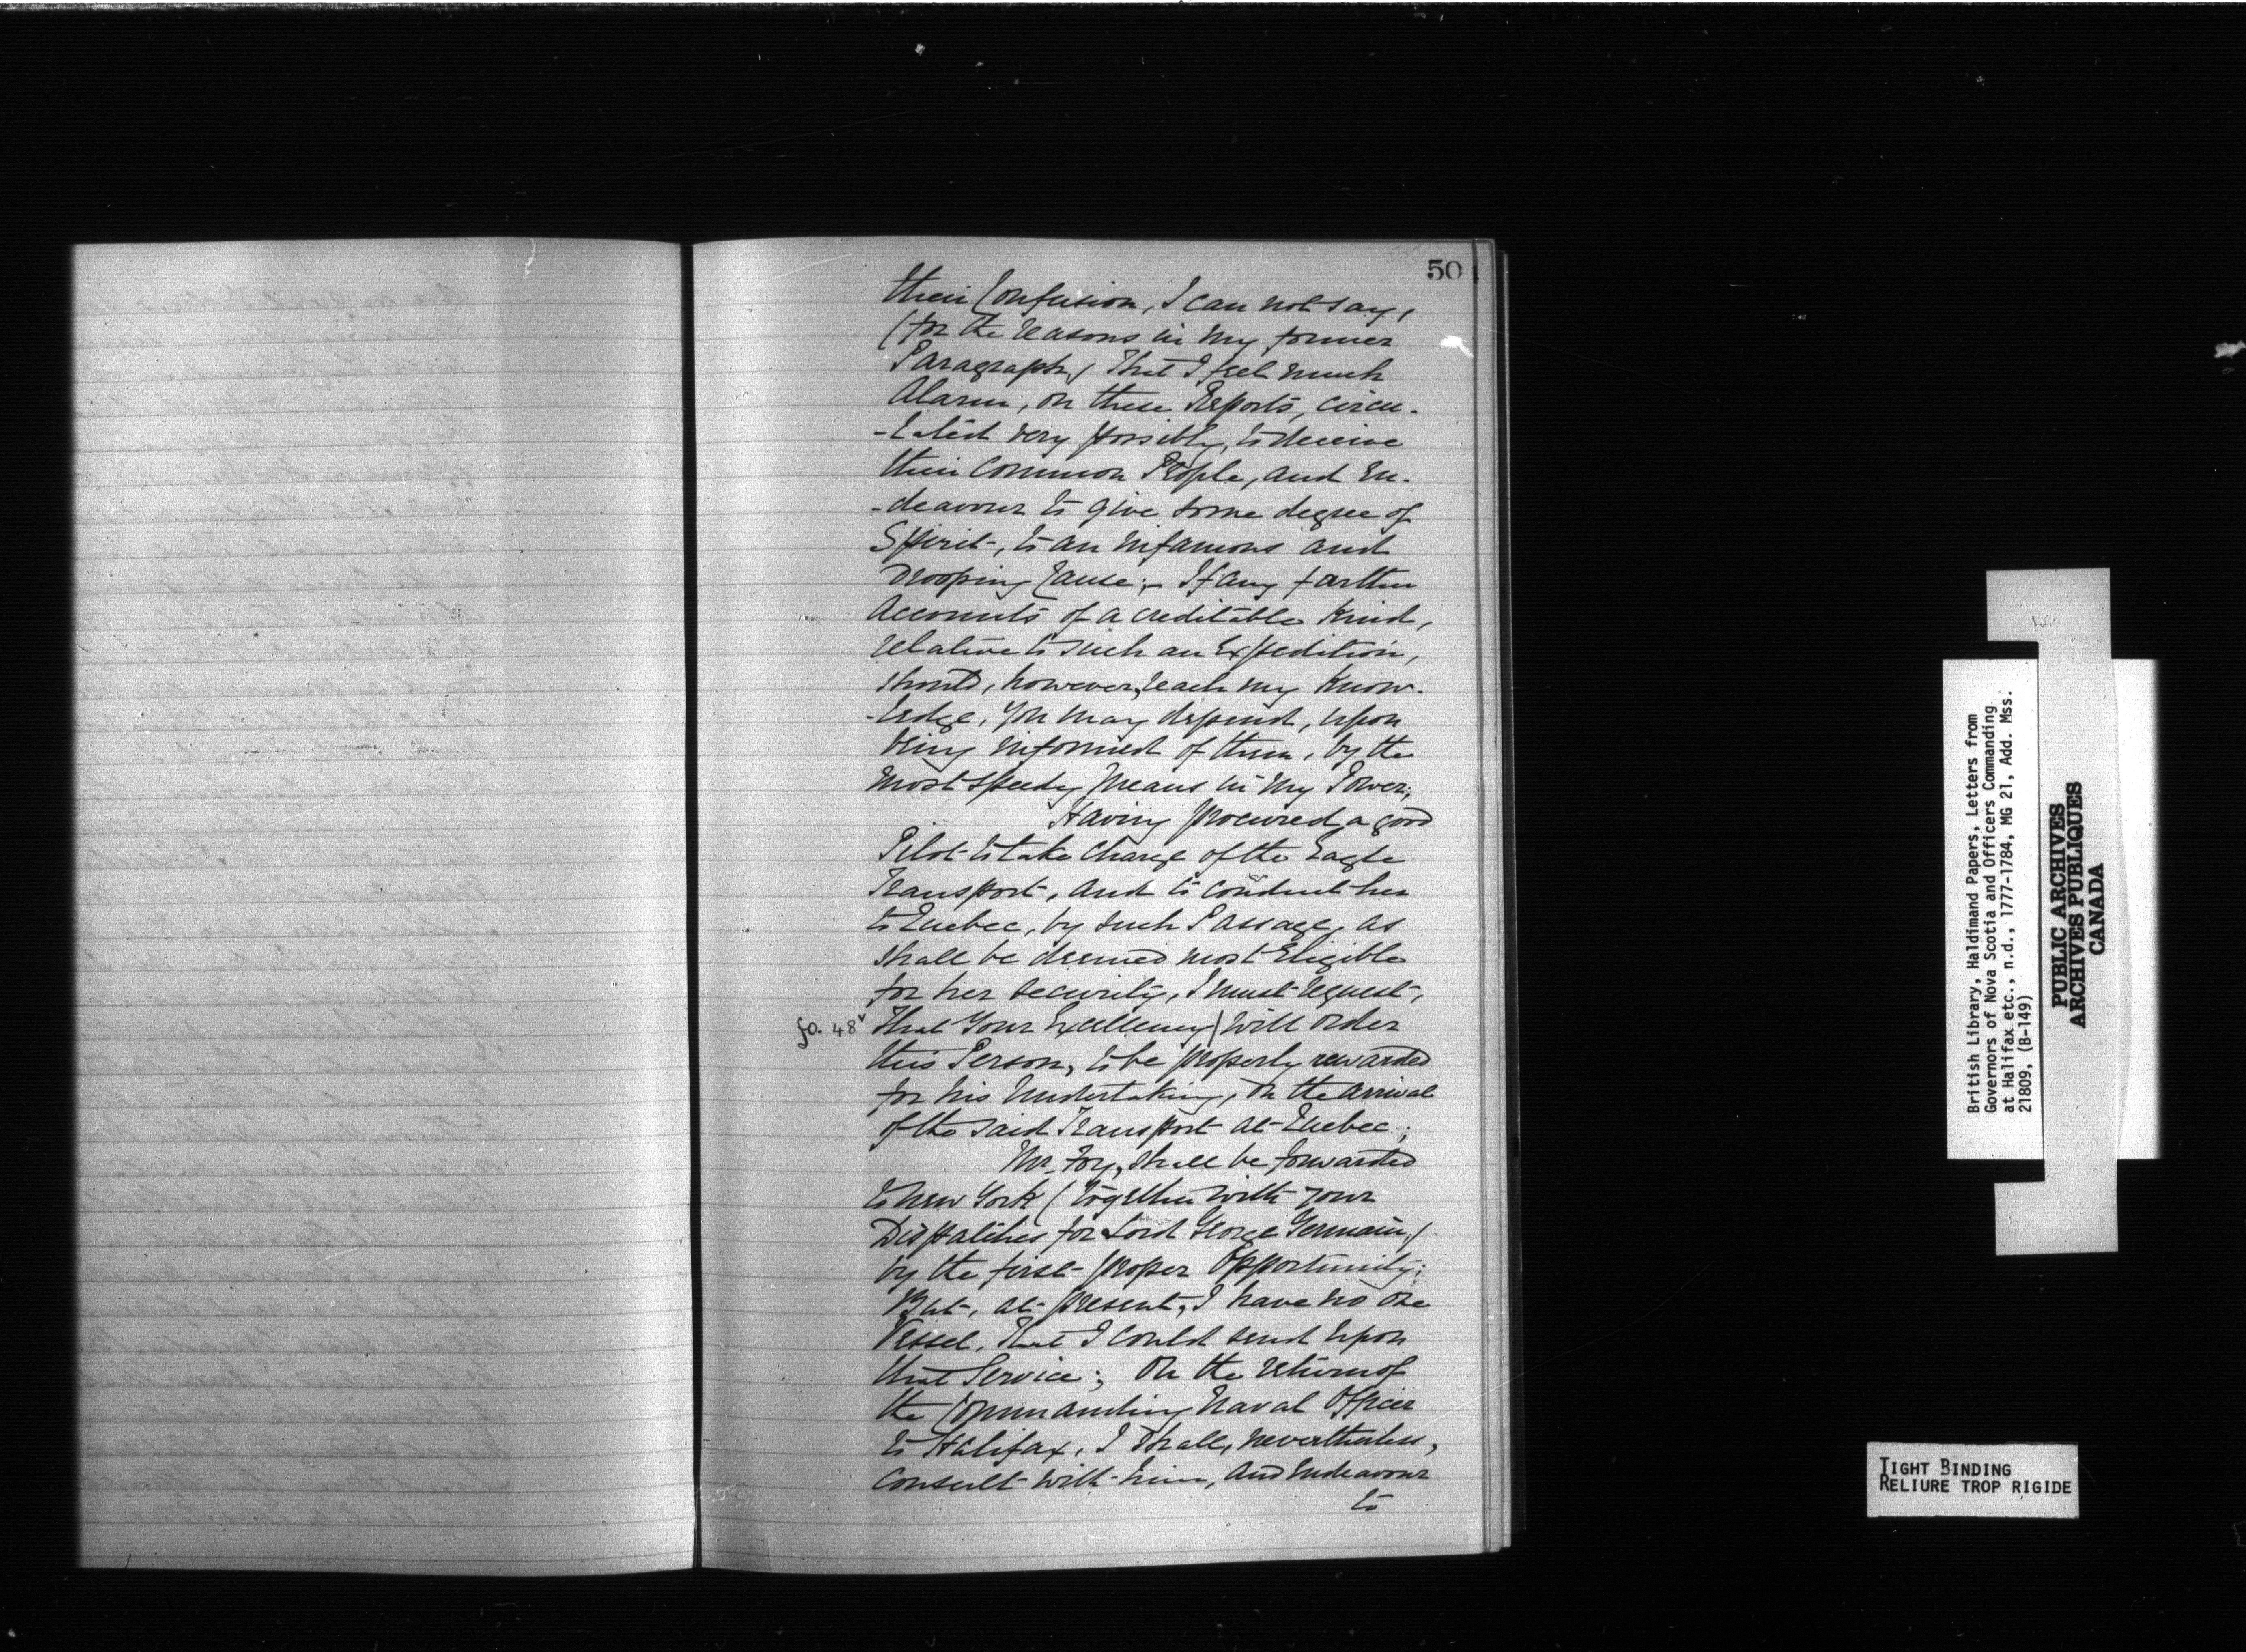 50
their Confusion, I can not say,
(for the reasons in my former
Paragraph,) That I feel much
Alarm, on these Reports, circu-
-lated very possibly, to deceive
their Common People, and En-
-deavour to give some degree of
Spirit, to an infamous and
Drooping Cause;- If any farther
Accounts of a creditable Kind,
relative to such an Expedition,
should, however, reach my Know-
-ledge, you may depend, upon
being informed of them, by the
most speedy means in my Power;
Having procured a good
Pilot to take charge of the Eagle
Transport, and to conduct her
to Quebec, by such Passage, as
shall be deemed most Eligible
for her security, I must request,
fo. 48v That Your Excellency | will order
this Person, to be properly rewarded
for his Undertaking, on the arrival
of the said Transport at Quebec;
Mr. Foy, shall be forwarded
to New York (together with your
Dispatches for Lord George Germain,)
by the first proper Opportunity;
But, at present, I have no one
Vessel, That I could send upon
that Service; On the return of
the Commanding Naval Officer
to Halifax, I shall, nevertheless,
consult with him, and Endeavour
to
British Library, Haldimand Papers, Letters from
Governors of Nova Scotia and Officers Commanding
at Halifax etc., n.d., 1777-1784, MG 21, Add. Mss.
21809, (B-149)
PUBLIC ARCHIVES
ARCHIVES PUBLIQUES
CANADA
TIGHT BINDING
RELIURE TROP RIGIDE